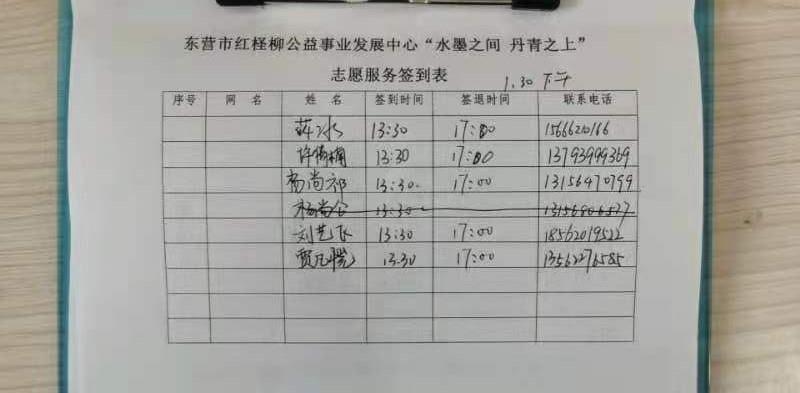 东营市红柽柳公益事业发展中心“水墨之间 丹青之上”
志愿服务签到表
1.30 下午
序号 网 名 姓 名 签到时间 签退时间 联系电话
13:30 17:00 1566620166
13:30 17:00 13793999369
杨尚祁 13:30. 17:00 13156470799
13:30
刘艺飞 13:30 17:00 18562019522
贾凡 13.30 17:00 13562276585